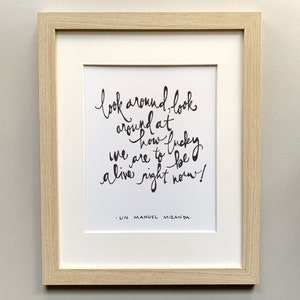 look around, look
around at
how lucky
we are to be
alive right now!
- LIN MANUEL MIRANDA